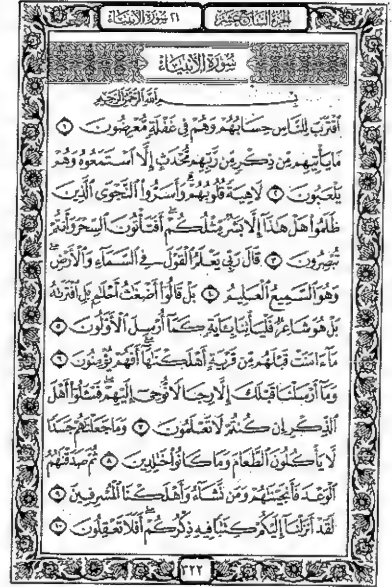 الجزء السابع عشر ٢١ سورة الأنبياء
سُورَةُ الأَنْبِيَاءِ
بِسْمِ اللَّهِ الرَّحْمَٰنِ الرَّحِيمِ
ٱقْتَرَبَ لِلنَّاسِ حِسَابُهُمْ وَهُمْ فِي غَفْلَةٍ مُّعْرِضُونَ ١
مَا يَأْتِيهِم مِّن ذِكْرٍ مِّن رَّبِّهِم مُّحْدَثٍ إِلَّا ٱسْتَمَعُوهُ وَهُمْ
يَلْعَبُونَ ٢ لَاهِيَةً قُلُوبُهُمْ وَأَسَرُّوا۟ ٱلنَّجْوَى ٱلَّذِينَ
ظَلَمُوا۟ هَلْ هَٰذَآ إِلَّا بَشَرٌ مِّثْلُكُمْ أَفَتَأْتُونَ ٱلسِّحْرَ وَأَنتُمْ
تُبْصِرُونَ ٣ قَالَ رَبِّي يَعْلَمُ ٱلْقَوْلَ فِي ٱلسَّمَآءِ وَٱلْأَرْضِ
وَهُوَ ٱلسَّمِيعُ ٱلْعَلِيمُ ٤ بَلْ قَالُوٓا۟ أَضْغَٰثُ أَحْلَٰمٍ بَلِ ٱفْتَرَىٰهُ
بَلْ هُوَ شَاعِرٌ فَلْيَأْتِنَا بِـَٔايَةٍ كَمَآ أُرْسِلَ ٱلْأَوَّلُونَ ٥
مَآ ءَامَنَتْ قَبْلَهُم مِّن قَرْيَةٍ أَهْلَكْنَٰهَآ أَفَهُمْ يُؤْمِنُونَ ٦
وَمَآ أَرْسَلْنَا قَبْلَكَ إِلَّا رِجَالًا نُّوحِيٓ إِلَيْهِمْ فَسْـَٔلُوٓا۟ أَهْلَ
ٱلذِّكْرِ إِن كُنتُمْ لَا تَعْلَمُونَ ٧ وَمَا جَعَلْنَٰهُمْ جَسَدًا
لَّا يَأْكُلُونَ ٱلطَّعَامَ وَمَا كَانُوا۟ خَٰلِدِينَ ٨ ثُمَّ صَدَقْنَٰهُمُ
ٱلْوَعْدَ فَأَنجَيْنَٰهُمْ وَمَن نَّشَآءُ وَأَهْلَكْنَا ٱلْمُسْرِفِينَ ٩
لَقَدْ أَنزَلْنَآ إِلَيْكُمْ كِتَٰبًا فِيهِ ذِكْرُكُمْ أَفَلَا تَعْقِلُونَ ١٠
٣٢٢